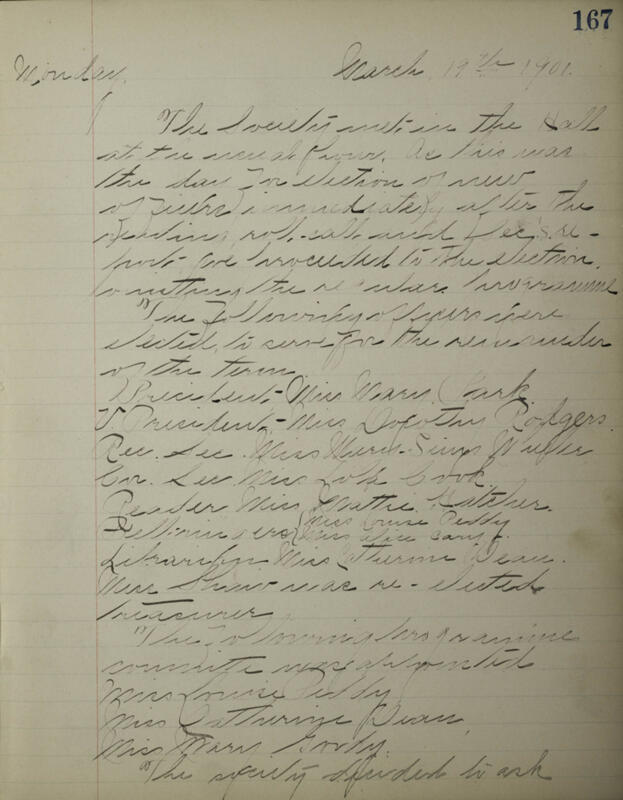 167
Monday. March 19th 1901.
The Society met in the Hall
at the usual hour. As this was
the day for election of new
officers immediately after the
reading, roll-call and Sec's re-
port we proceeded to the election,
omitting the regular programme
The following officers were
elected, to serve for the remainder
of the term.
President- Miss Mary Park.
V President- Miss Dorothy Rodgers.
Rec. Sec. Miss Sims
Cor. Sec Miss Cook
Reader Miss Mattie Hatcher.
Bellringers { Miss Louise Peddy
Miss Alice Cary
Librarian Miss Dean.
Miss Shaw was re-elected
treasurer
The following programme
committe were appointed
Miss Louise Peddy
Miss Catherine Dean,
Miss Mary
The society decided to ask